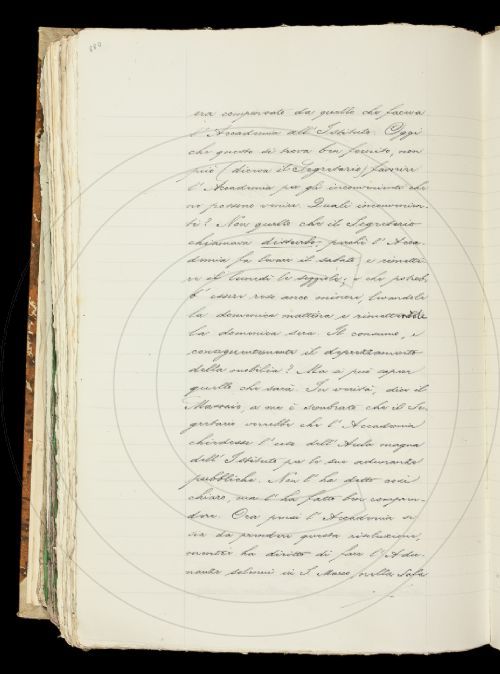 880
era compensato da quello che faceva
l'Accademia all'Istituto. Oggi
che questo si trova ben fornito, non
può (diceva il Segretario) favorire
l'Accademia per gli inconvenienti che
ne possono venire. Quali inconvenien-
ti? Non quello che il Segretario
chiamava disturbo, perché l'Acca-
demia fa levare il sabato e rimette-
re il lunedì le seggiole; e che potreb-
b'essere reso anco minore, levandole
la domenica mattina e rimettendole
la domenica sera. Il consumo, e
conseguentemente il deprezzamento
della mobilia? Ma si può sapere
quello che sarà. In verità, dice il
Massaio, a me è sembrato che il Se-
gretario vorrebbe che l'Accademia
chiedesse l'uso dell'Aula magna
dell'Istituto per le sue adunanze
pubbliche. Non l'ha detto così
chiaro, ma l'ha fatto ben compren-
dere. Ora pensi l'Accademia se
sia da prendere questa risoluzione,
mentre ha diritto di fare l'Adu-
nanza solenne in S. Marco, nella Sala